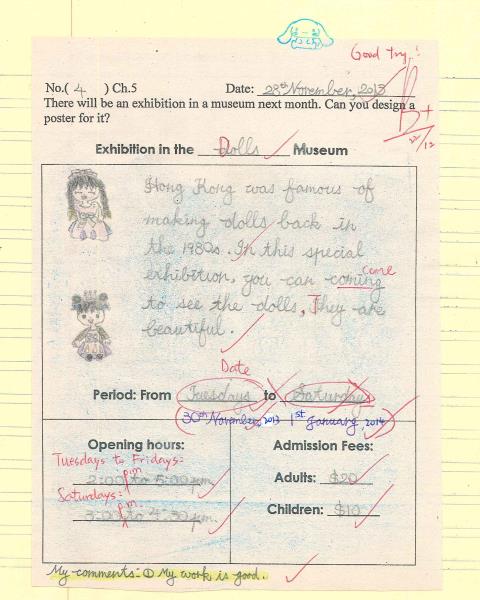 Good try!
No.( 4 ) Ch.5 Date: 28th November, 2013
B+
There will be an exhibition in a museum next month. Can you design a
poster for it?
22/12
Exhibition in the Dolls Museum
Hong Kong was famous of
making dolls back in
the 1980s. In this special
exhibition, you can coming
come
to see the dolls, They are
beautiful.
Date
Period: From Tuesdays to Saturdays
(30th November, 2013 1st January, 2014)
Opening hours:
Tuesdays to Fridays:
p.m.
2:00 to 5:00 p.m.
Saturdays:
p.m.
3:00 to 4:30 p.m.
Admission Fees:
Adults: $20
Children: $10
My comments: ① My work is good.